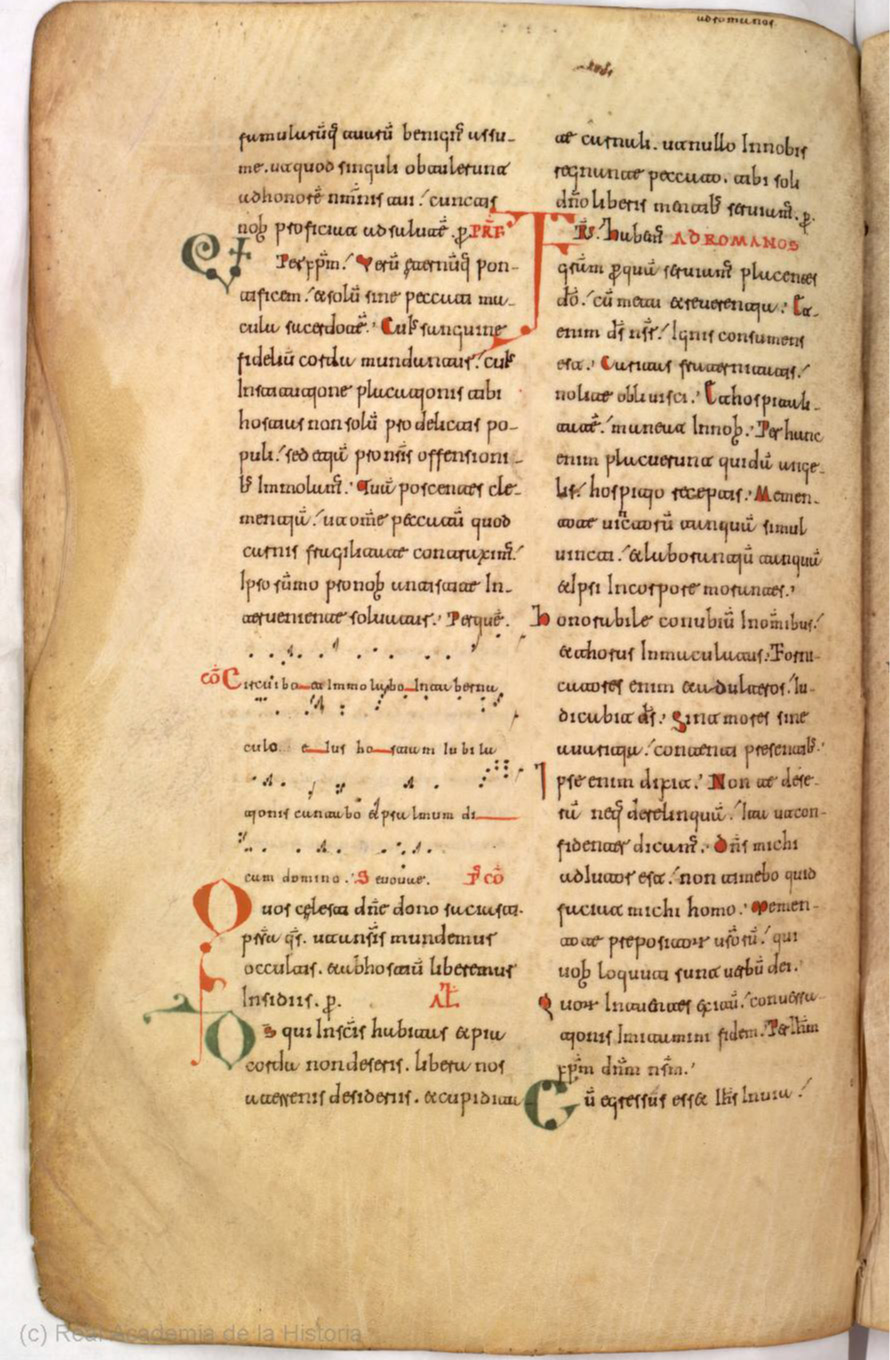 famularūq̄ tuarū benign̄ assu-
me. ut quod singuli obtulerunt
ad honorē nm̄nis tui / cunctis
nob̄ proficiat ad salutē. p̄. PRĒF
Et Per xp̄m / Verū eternūq̄ pon-
tificem / & solū sine peccati ma-
cula sacerdotē. Cuiˢ sanguine
fideliū corda mundantur / cuiˢ
Institutione placationis tibi
hostias non solū pro delictis po-
puli / sed etiā pro nsīs offensioni-
b; Immolam̄. Tuā poscentes cle-
mentiā / ut om̄e peccatū quod
carnis fragilitate contraxim̄ /
Ipso sūmo pro nob̄ antistite In-
terueniente soluatur. Per quē.
cō Circuibo et Immolabo In taberna
culo eius hostiam iubila
tionis cantabo & psalmum di
cum domino. Seuouae. P̄ cō
Quos celesti dn̄e dono satias.
p̄sta qs̄. ut a nsīs mundemur
occultis. & ab hostiū liberemur
Insidiis. p̄. AL̄
Ds̄ qui In scīs habitas & pia
corda non deseris. libera nos
a terrenis desideriis. & cupiditat
ad romanos
ae carnali. ut nullo In nobis
regnante peccato. tibi soli
dn̄o liberis mentib; seruiam̄. p̄.
FRS̄. Habem̄ AD ROMANOS
grām p̄ quā seruiam̄ placentes
dō / cū metu & reuerentia. Et-
enim ds̄ nsr̄ / Ignis consumens
est. Caritas fraternitatis /
nolite obliuisci. Et hospitali-
tatē / maneat In nob̄. Per hanc
enim placuerunt quidā ange-
lis / hospitio receptis. Memen-
tote uinctorū tanquā simul
uincti / & laborantiū tanquā
& Ipsi In corpore morantes.
Honorabile conubiū In om̄ibus /
& thorus Inmaculatus. Forni-
catores enim & adulteros / Iu-
dicabit ds̄. Sint mores sine
auaritia / contenti presentib;.
Ipse enim dixit. Non te dese-
rā neq; derelinquā / Ita ut con-
fidenter dicam̄. Dn̄s michi
adiutor est / non timebo quid
faciat michi homo. Memen-
tote prepositorum usōrū / qui
uob̄ locuti sunt uerbū dei.
Quorum Intuentes exitū / conuersa-
tionis Imitamini fidem. Per Ihm̄
xp̄m dnm̄ nsm̄.
Cū egressus esset Ihs̄ In uia /
(c) Real Academia de la Historia